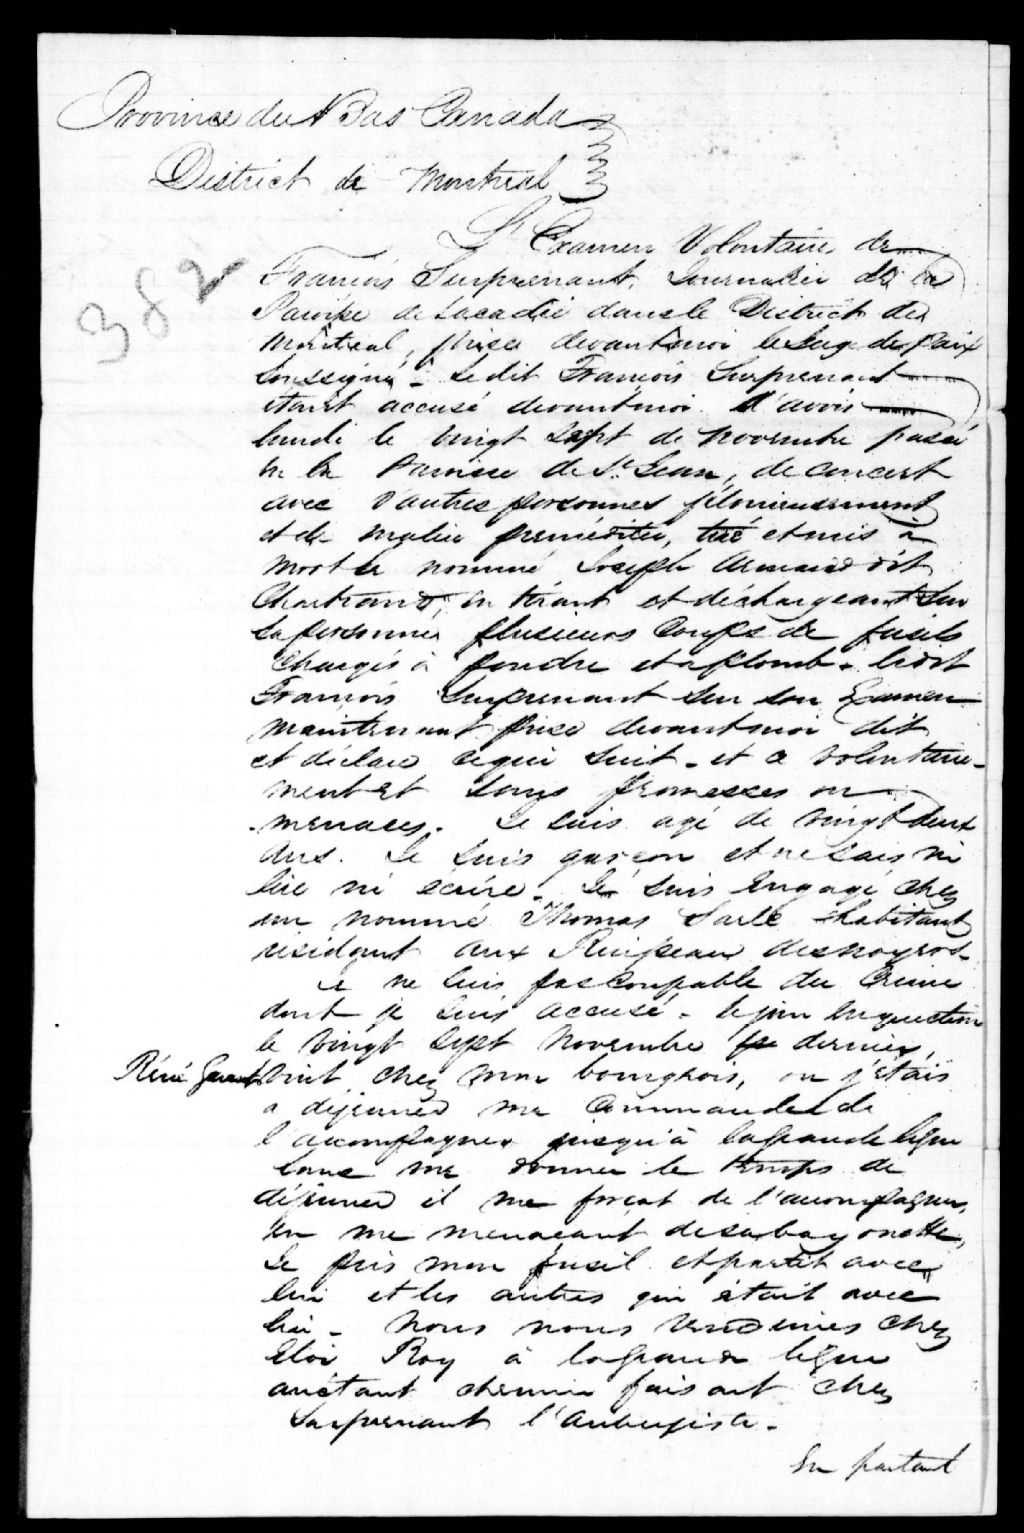 Province du Bas Canada
District de Montreal
L'Examen Volontaire de
382
François Surprenant, Journalier de la
Paroisse de Lacadie dans le District de
Montreal, prise devant moi le Juge de Paix
Soussigné - Le dit François Surprenant
étant accusé devant moi d'avoir
lundi le vingt sept de novembre passé
en la Paroisse de St Jean, de concert
avec d'autres personnes félonieusement
et de malice préméditée, tué et mis à
mort le nommé Joseph Armand dit
Chartrand, en tirant et déchargeant sur
sa personne plusieurs coups de fusils
chargés à poudre et a plomb - ledit
François Surprenant sur son Examen
maintenant prise devant moi dit
et déclare ce qui suit - et ce volontaire-
ment et sans promesses ou
menaces. Je suis agé de vingt deux
ans. Je suis garçon et ne sais ni
lire ni écrire. Je suis engagé chez
un nommé Thomas habitant
résidant aux Ruisseau des noyers -
Je ne suis pas coupable du Crime
dont je suis accusé - le jour en question
le vingt sept novembre dernier,
René vint chez mon bourgeois, ou j'étais
a déjeuner me Commander de
l'acompagner jusqu'à la grande ligne
sans me donner le temps de
déjeuner il me forçat de l'acompagner,
en me menacant de sa bayonette,
Je pris mon fusil et partit avec
lui et les autres qui était avec
lui - Nous nous rendimes chez
Eloi Roy à la grande ligne
arêtant chemin faisant chez
Surprenant l'aubergiste -
En partant